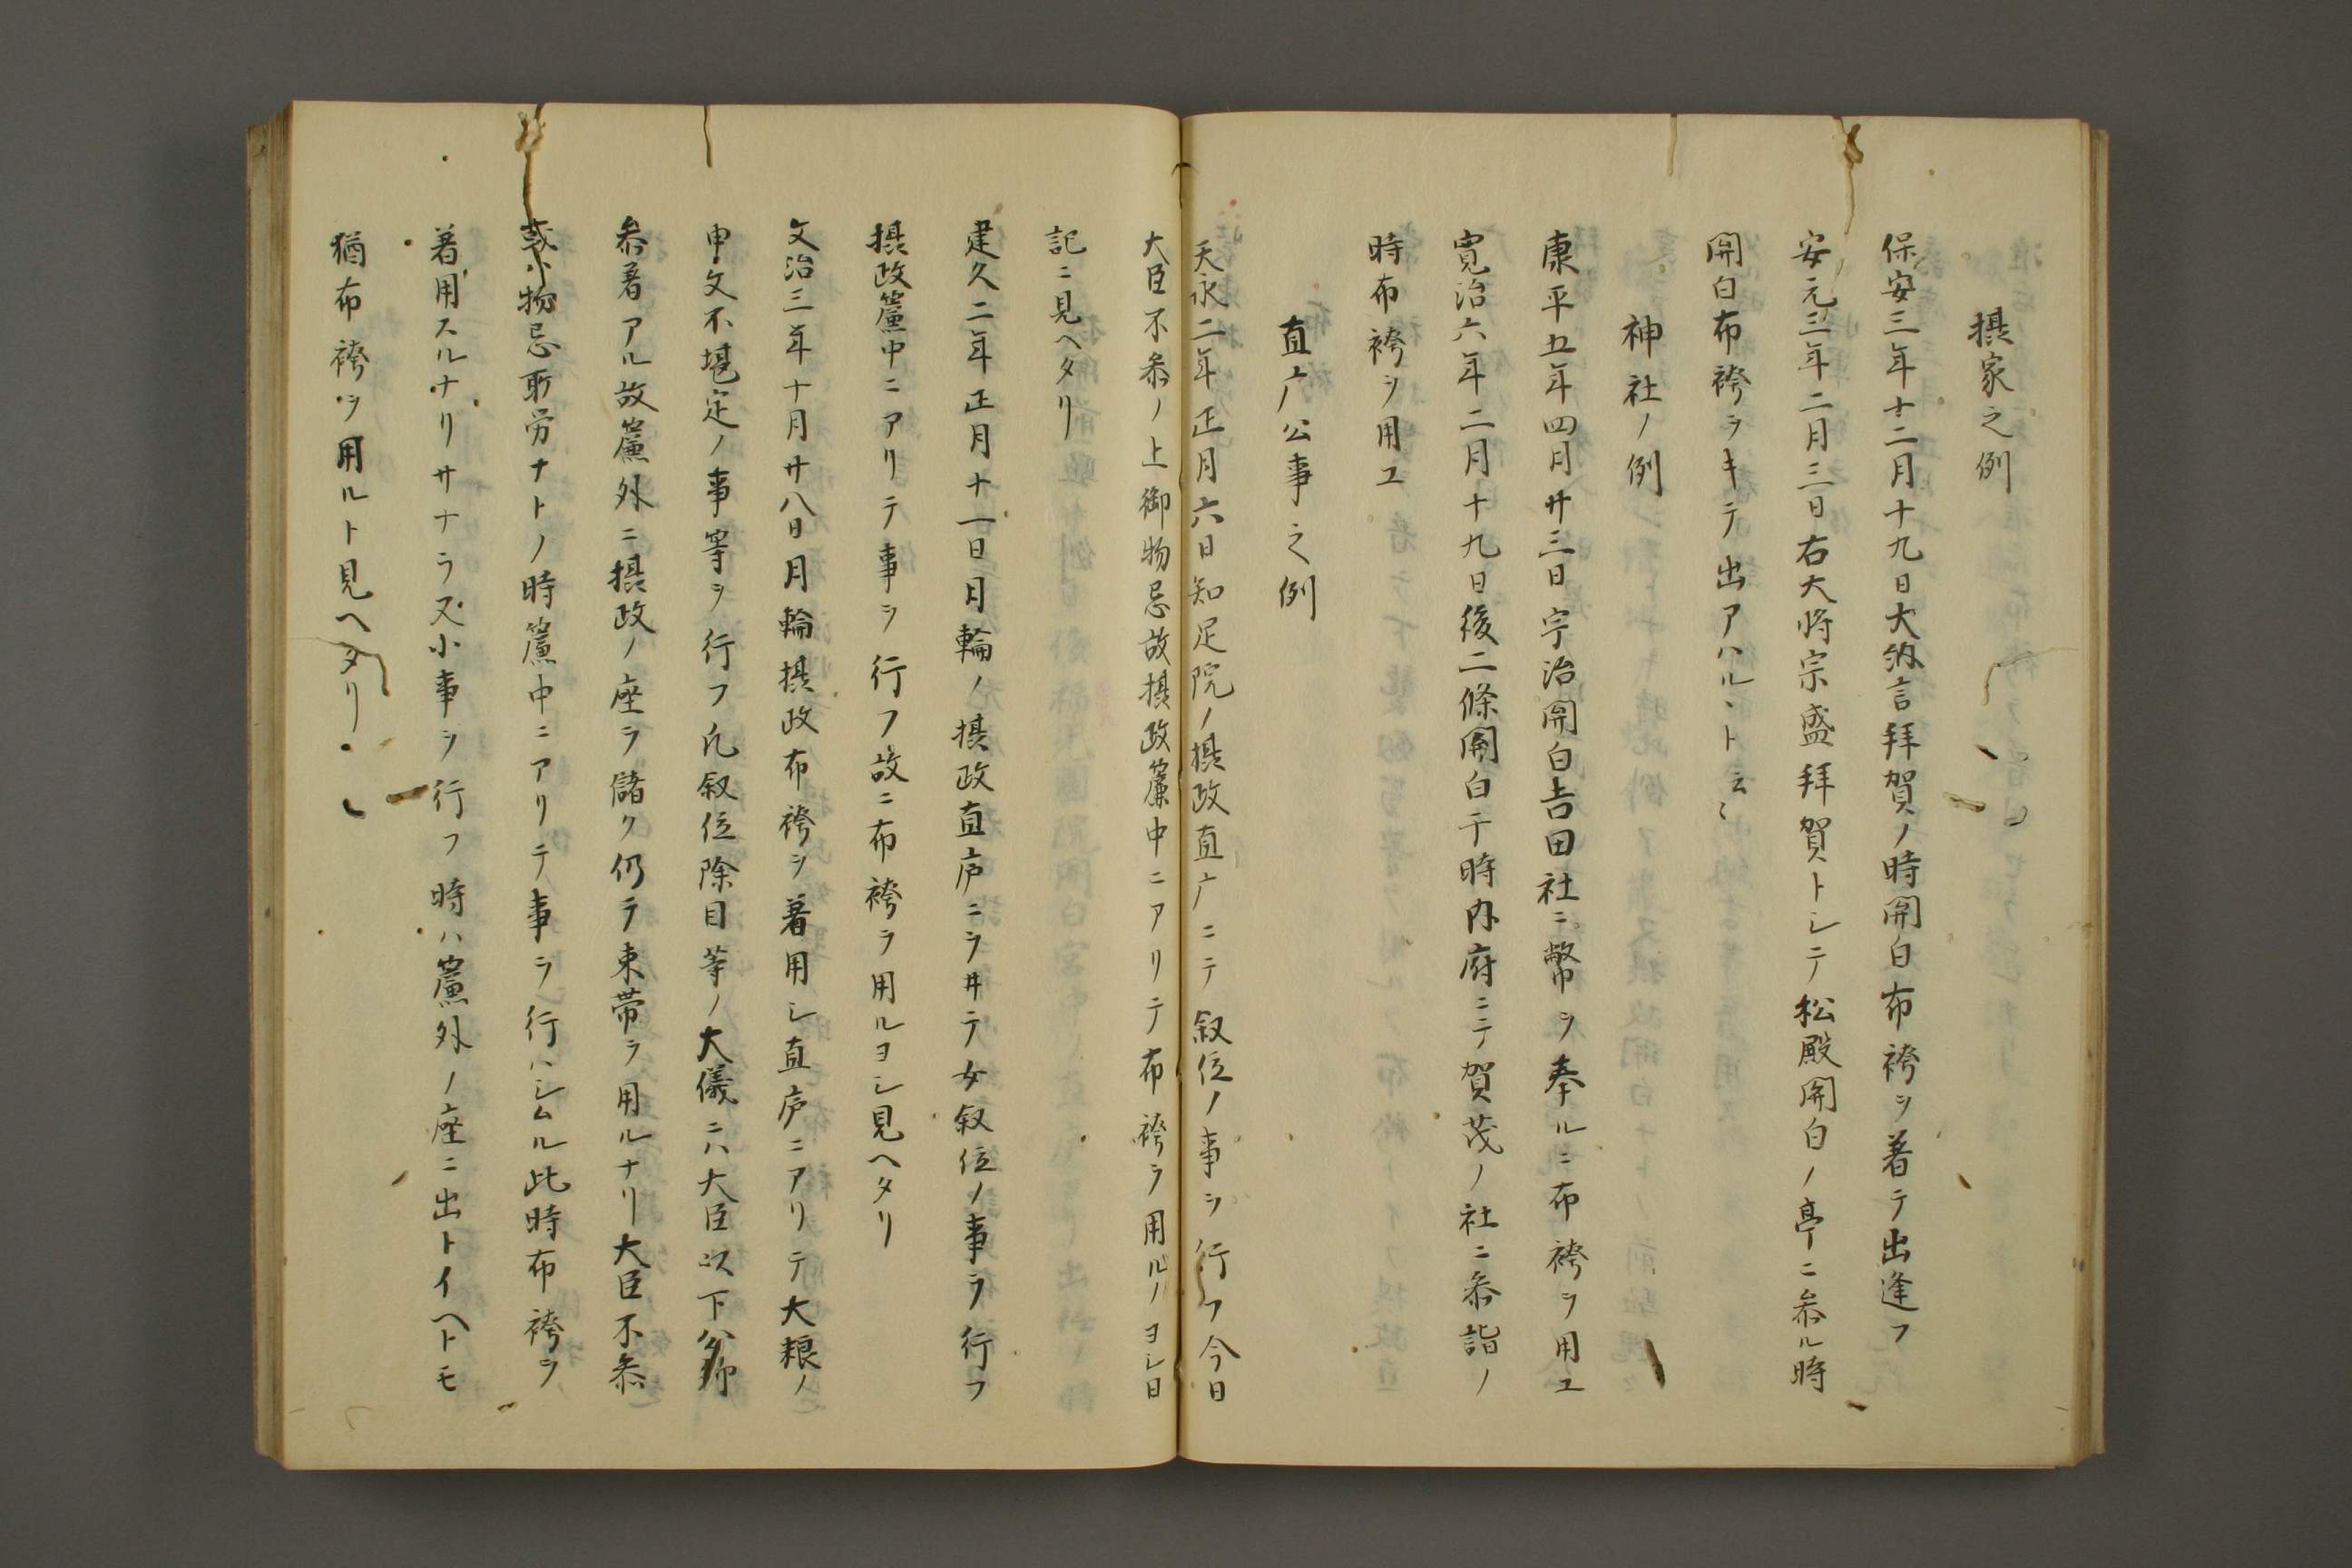 摂家之例
保安三年十二月十九日大納言拝賀ノ時関白布袴ヲ着テ出逢フ
安元三年二月三日右大将宗盛拝賀トシテ松殿関白ノ亭ニ参ル時
関白布袴ヲキテ出アハルヽト云々
神社ノ例
康平五年四月廿三日宇治関白吉田社ニ幣ヲ奉ルニ布袴ヲ用ユ
寛治六年二月十九日後二條関白于時内府ニテ賀茂ノ社ニ参詣ノ
時布袴ヲ用ユ
直广公事之例
天永二年正月六日知足院ノ摂政直广ニテ叙位ノ事ヲ行フ今日
大臣不参ノ上御物忌故摂政簾中ニアリテ布袴ヲ用ルノヨシ日
記ニ見ヘタリ
建久二年正月十一日月輪ノ摂政直庐ニヲ井テ女叙位ノ事ヲ行フ
摂政簾中ニアリテ事ヲ行フ故ニ布袴ヲ用ルヨシ見ヘタリ
文治三年十月廿八日月輪摂政布袴ヲ着用シ直庐ニアリテ大粮ノ
申文不堪定ノ事等ヲ行フ凡叙位除目等ノ大儀ニハ大臣以下公卿
参着アル故簾外ニ摂政ノ座ヲ儲ク仍テ束帯ヲ用ルナリ大臣不参
或ハ物忌所労ナトノ時簾中ニアリテ事ヲ行ハシムル此時布袴ヲ
着用スルナリサナラヌ小事ヲ行フ時ハ簾外ノ座ニ出トイヘトモ
猶布袴ヲ用ルト見ヘタリ